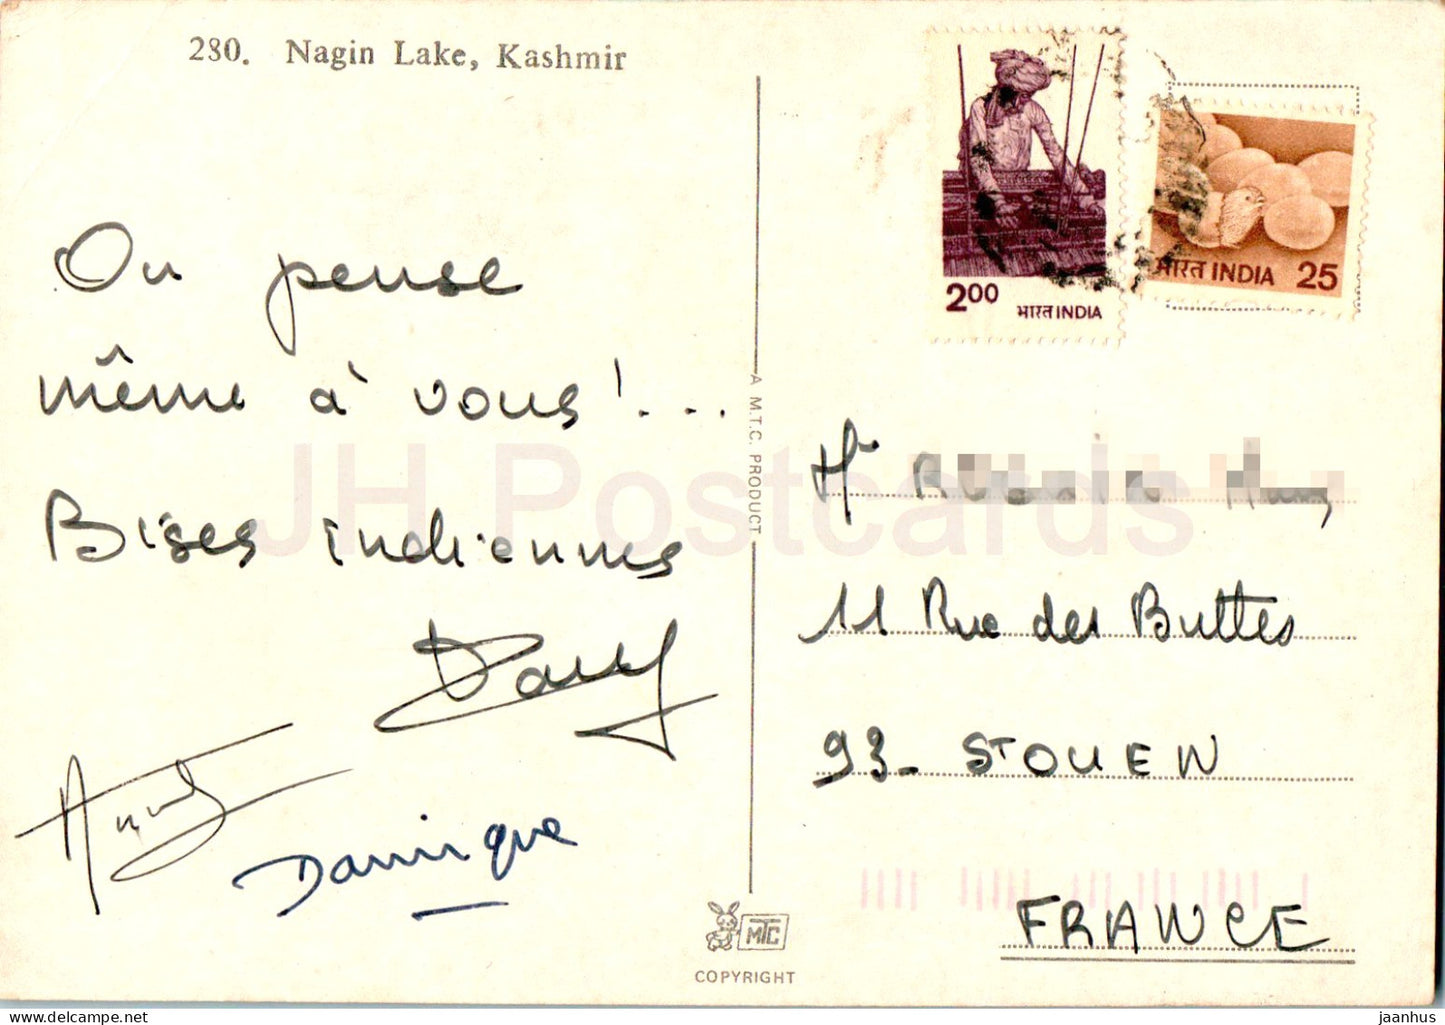 280. Nagin Lake, Kashmir
On pense
même à vous !...
Bises indiennes
Dany
Dominique
A M.T.C. PRODUCT
MTC
COPYRIGHT
2.00
भारत INDIA
भारत INDIA 25
Mr
11 Rue des Buttes
93 - ST OUEN
FRANCE
JH Postcards
jaanhus